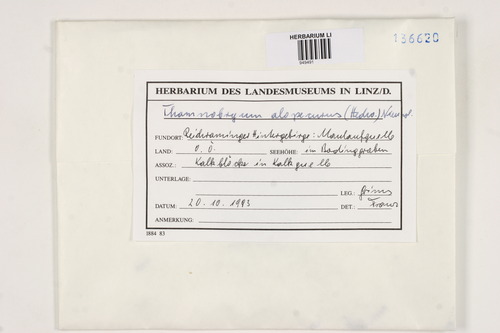 HERBARIUM LI
136620
HERBARIUM DES LANDESMUSEUMS IN LINZ/D.
Thamnobryum alopecurus (Hedw.) Nieuwl.
FUNDORT: Reichraminger Hintergebirge: Maulaufquelle
LAND: O.Ö. SEEHÖHE: im Bodinggraben
ASSOZ.: Kalkblöcke in Kalkquelle
UNTERLAGE:
LEG.: Grims
DATUM: 20.10.1983 DET.: Franz
ANMERKUNG:
1884 83